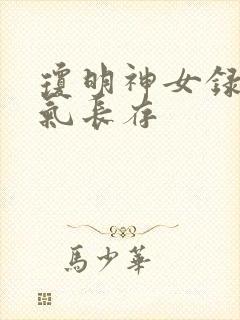 瓊明神女録
氣長存
馬少華